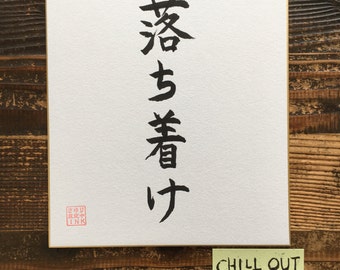 落ち着け
CHILL OUT